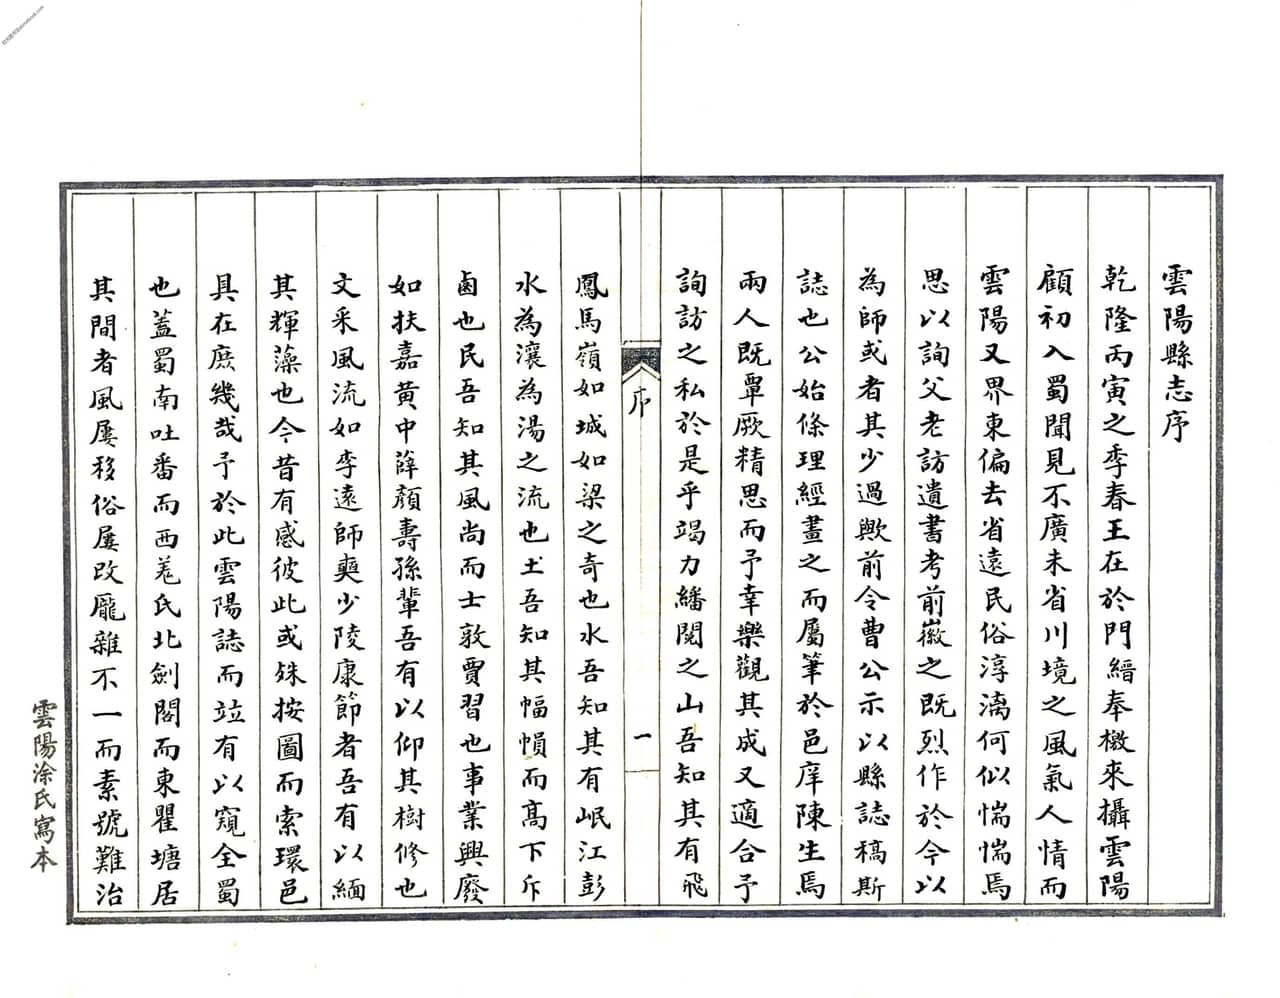 雲陽縣志序
乾隆丙寅之季春王在於門縉奉檄來攝雲陽
顧初入蜀聞見不廣未省川境之風氣人情而
雲陽又界東偏去省遠民俗淳漓何似惴惴焉
思以詢父老訪遺書考前徽之既烈作於今以
為師或者其少過歟前令曹公示以縣誌稿斯
誌也公始條理經畫之而屬筆於邑庠陳生焉
兩人既覃厥精思而予幸樂觀其成又適合予
詢訪之私於是乎竭力繙閱之山吾知其有飛
序
一
鳳馬嶺如城如梁之奇也水吾知其有岷江彭
水為瀼為湯之流也土吾知其幅幀而高下斥
鹵也民吾知其風尚而士敦賈習也事業興廢
如扶嘉黃中薛顏壽孫輩吾有以仰其樹修也
文采風流如李遠師奭少陵康節者吾有以緬
其輝藻也今昔有感彼此或殊按圖而索環邑
具在庶幾哉予於此雲陽誌而竝有以窺全蜀
也蓋蜀南吐番而西羌氐北劍閣而東瞿塘居
其間者風屢移俗屢改龐雜不一而素號難治
雲陽涂氏寫本